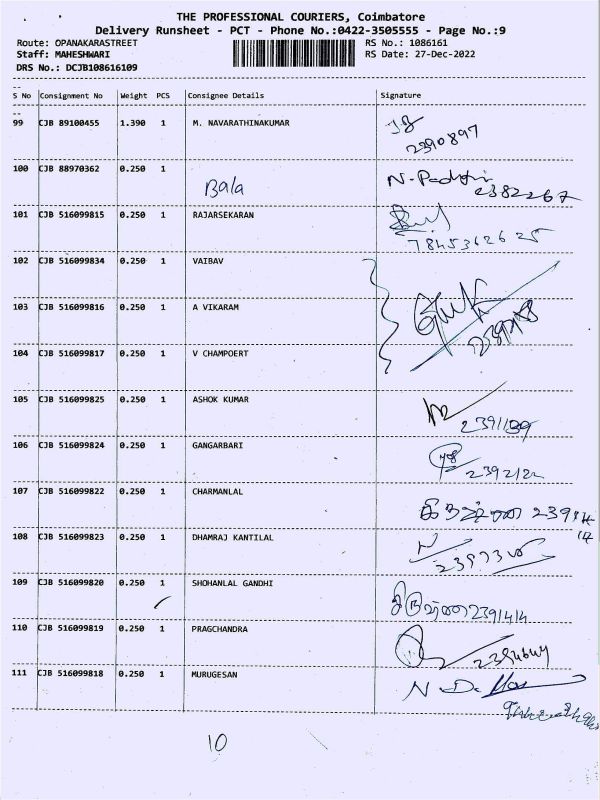 THE PROFESSIONAL COURIERS, Coimbatore
Delivery Runsheet - PCT - Phone No.:0422-3505555 - Page No.:9
Route: OPANAKARASTREET RS No.: 1086161
Staff: MAHESHWARI RS Date: 27-Dec-2022
DRS No.: DCJB108616109
S No Consignment No Weight PCS Consignee Details Signature
99 CJB 89100455 1.390 1 M. NAVARATHINAKUMAR
2390897
100 CJB 88970362 0.250 1
Bala 2382267
101 CJB 516099815 0.250 1 RAJARSEKARAN
102 CJB 516099834 0.250 1 VAIBAV
103 CJB 516099816 0.250 1 A VIKARAM
104 CJB 516099817 0.250 1 V CHAMPOERT
105 CJB 516099825 0.250 1 ASHOK KUMAR
106 CJB 516099824 0.250 1 GANGARBARI
107 CJB 516099822 0.250 1 CHARMANLAL
108 CJB 516099823 0.250 1 DHAMRAJ KANTILAL
109 CJB 516099820 0.250 1 SHOHANLAL GANDHI
2391414
110 CJB 516099819 0.250 1 PRAGCHANDRA
111 CJB 516099818 0.250 1 MURUGESAN
10